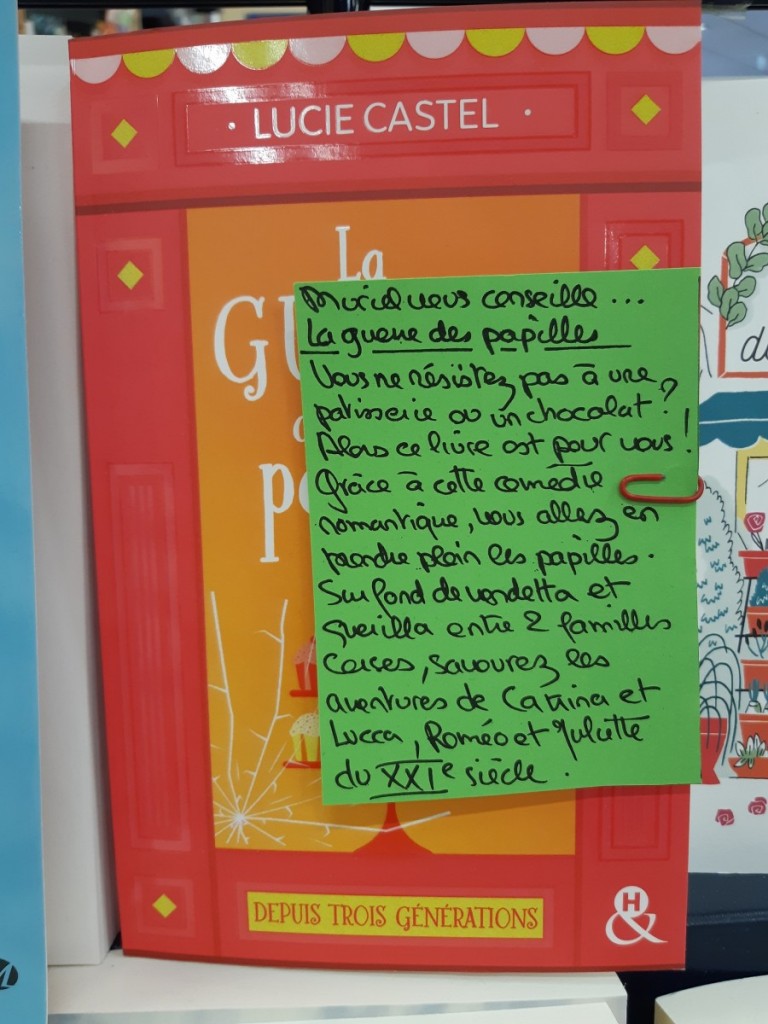 LUCIE CASTEL
La
GU
p
Muriel vous conseille ...
La guerre des papilles
Vous ne résistez pas à une
patisserie ou un chocolat ?
Alors ce livre est pour vous !
Grâce à cette comédie
romantique, vous allez en
prendre plein les papilles.
Sur fond de vendetta et
guerilla entre 2 familles
Corses, savourez les
aventures de Catrina et
Lucca, Roméo et Juliette
du XXIe siècle.
DEPUIS TROIS GÉNÉRATIONS
H
&
d